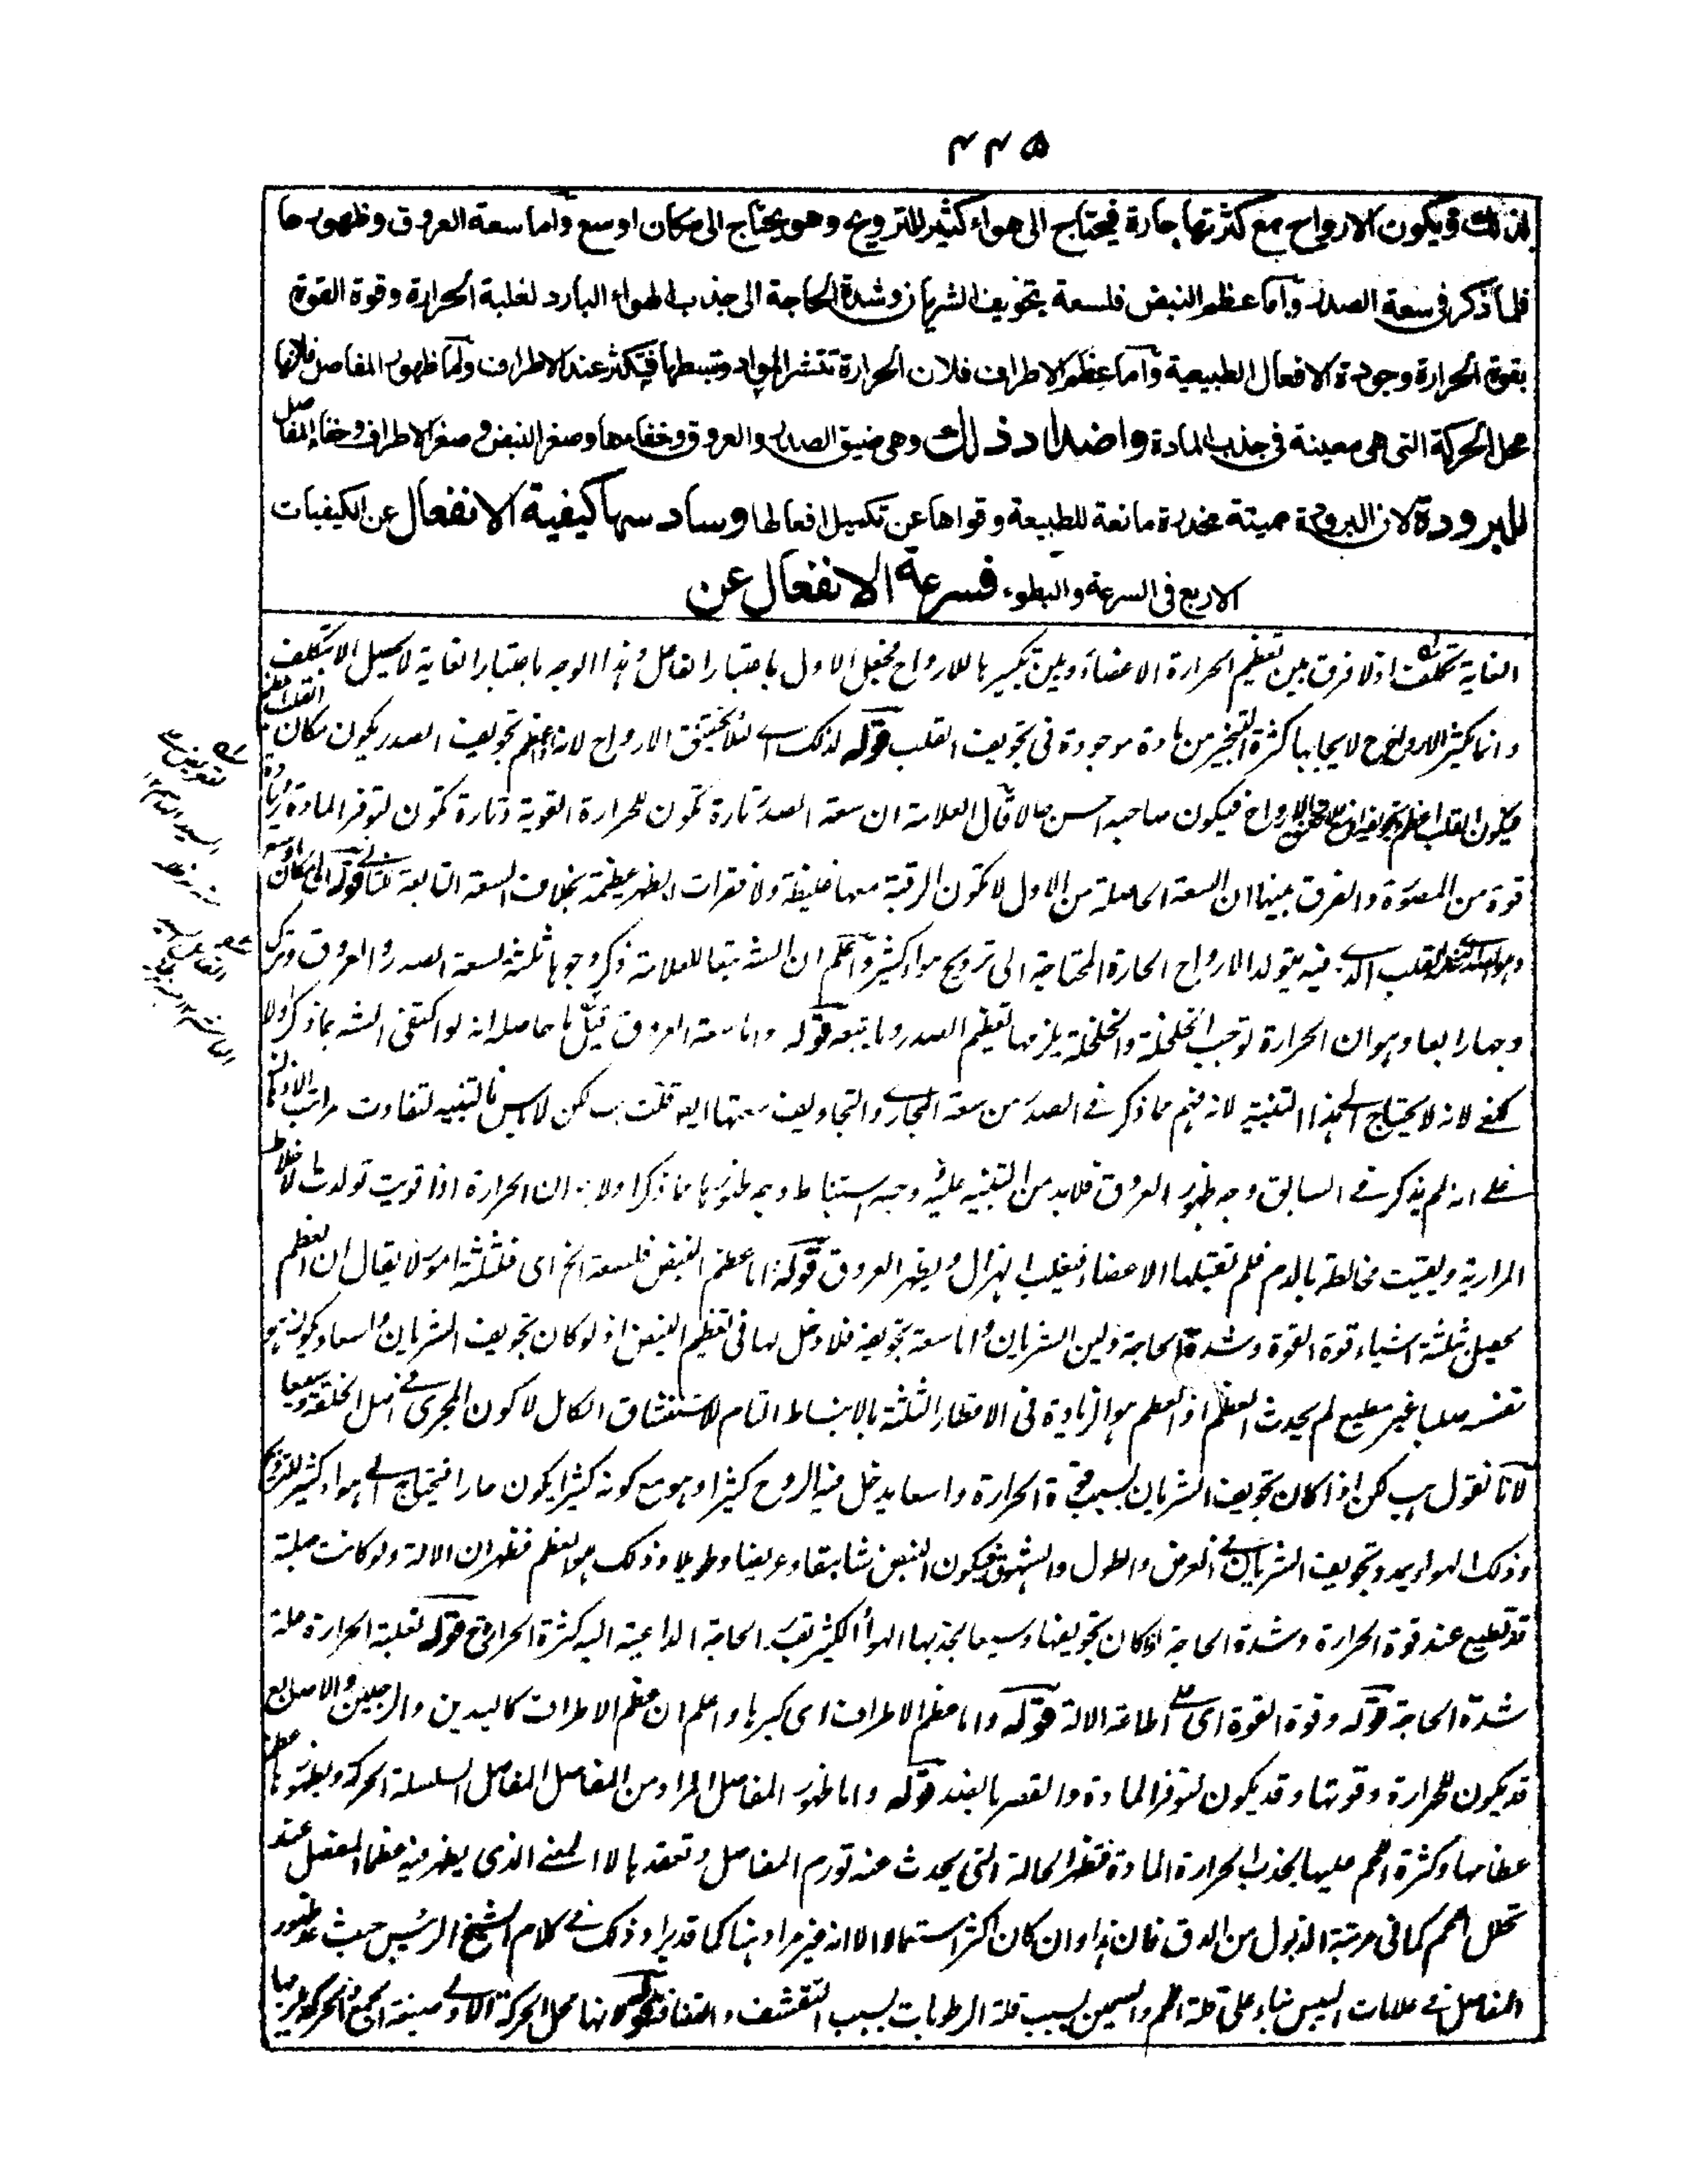 ۴۴۵
لذلك ويكون الارواح مع كثرتها حارة فيحتاج الى هواء كثير للترويح وهو يحتاج الى مكان اوسع واما سعة العروق وظهورها
فلما ذكر فى سعة الصدر واما عظم النبض فلسعة تجويف الشريان وشدة الحاجة الى جذب الهواء البارد لغلبة الحرارة وقوة القوة
بقوة الحرارة وجودة الافعال الطبيعية واما عظم الاطراف فلان الحرارة تنشر المواد وتبسطها فيكثر عند الاطراف واما ظهور المفاصل فلانها
محل الحركة التى هى معينة فى جذب المادة واضداد ذلك وهى ضيق الصدر والعروق وخفاءها وصغر النبض وصغر الاطراف وخفاء المفاصل
للبرودة لان البرودة مميتة مخدرة مانعة للطبيعة وقواها عن تكميل افعالها وسادسها كيفية الانفعال عن الكيفيات
الاربع فى السرعة والبطوء فسرعة الانفعال عن
الغاية تكلف اذ لا فرق بين تعظيم الحرارة الاعضاء وبين تكثيرها للارواح فجعل الاول باعتبار الفاعل وهذا الوجه باعتبار الغاية لا يحصل الا بتكلف
وانما يكثر الارواح لايجابها كثرة التبخير من مادة موجودة فى تجويف القلب قوله لذلك اى لئلا يختنق الارواح لانه اعظم تجويف الصدر يكون مكان القلب
فيكون القلب الارواح فيكون صاحبه احسن حالا قال العلامة ان سعة الصدر تارة تكون للحرارة القوية وتارة تكون لتوفر المادة
قوة من المصورة والفرق بينهما ان السعة الحاصلة من الاول لا تكون الرقبة معها غليظة ولا فقرات الظهر عظيمة بخلاف السعة التابعة للثانى قوله الى مكان اوسع
القلب الذى فيه يتولد الارواح الحارة المحتاجة الى ترويح هواء كثير واعلم ان الشه تبعا للعلامة ذكر وجوها ثلثة لسعة الصدر والعروق وترك
وجها رابعا وهو ان الحرارة توجب التخلخلة والتخلخلة يلزمها تعظيم الصدر وما يتبعه قوله واما سعة العروق قيل ما حاصله انه لو اكتفى الشه بما ذكر اولا
كفى لانه لا يحتاج الى هذا التنبيه لانه فهم مما ذكر فى الصدر من سعة المجارى والتجاويف سعتها ايضا قلت هب لكن لا باس بالتنبيه لتفاوت مراتب الاذهان
على انه لم يذكر فى السابق وجه ظهور العروق فلا بد من التنبيه عليه وجه استنباط وجه ظهورها مما ذكر اولا هو ان الحرارة اذا قويت تولدت الاخلاط
المرارية وبقيت مخالطة بالدم فلم تقبلها الاعضاء فيغلب الهزال ويظهر العروق قوله اما عظم النبض فلسعة الخ اى فلثلثة امور لا يقال ان العظم
يحصل بثلثة اشياء قوة القوة وشدة الحاجة ولين الشريان واما سعة تجويفه فلا دخل لها فى تعظيم النبض اذ لو كان تجويف الشريان واسعا ويكون هو
نفسه صلبا غير مطيع لم يحدث العظم اذ العظم هو الزيادة فى الاقطار الثلثة بالانبساط التام للاستنشاق الكامل لا كون المجرى فى اصل الخلقة وسيعا
لانا نقول هب لكن اذا كان تجويف الشريان بسبب قوة الحرارة واسعا يدخل فيه الروح كثيرا وهو مع كونه كثيرا يكون حارا فيحتاج الى هواء كثير للترويح
وذلك الهواء يمدد تجويف الشريان فى العرض والطول والشهوق فيكون النبض شاهقا وعريضا وطويلا وذلك هو العظم فظهر ان الالة ولو كانت صلبة
قد تطيع عند قوة الحرارة وشدة الحاجة اذا كان تجويفها وسيعا يجذبها الهواء الكثير بقدر الحاجة الداعية اليه كثرة الحرارة قوله لغلبة الحرارة علة
شدة الحاجة قوله وقوة القوة اى على اطاعة الالة قوله واما عظم الاطراف اى كبرها واعلم ان عظم الاطراف كاليدين والرجلين والاصابع
قد يكون للحرارة وقوتها وقد يكون لتوفر المادة والقصر بالضد قوله واما ظهور المفاصل المراد من المفاصل المفاصل السلسلة الحركة وبظهورها عظم
عظامها وكثرة اللحم عليها بجذب الحرارة المادة فتظهر الحالة التى يحدث عنه تورم المفاصل وتعقدها لا المعنى الذى يظهر فيه عظام المفصل عند
تحلل اللحم كما فى مرتبة الذبول من الدق فان هذا وان كان اكثر استعمالا الا انه غير مراد هنا كما قد يراد ذلك فى كلام الشيخ الرئيس حيث عد ظهور
المفاصل فى علامات اليبس بناء على قلة اللحم والسمين بسبب قلة الرطوبات بسبب التقشف قوله لانها محل الحركة